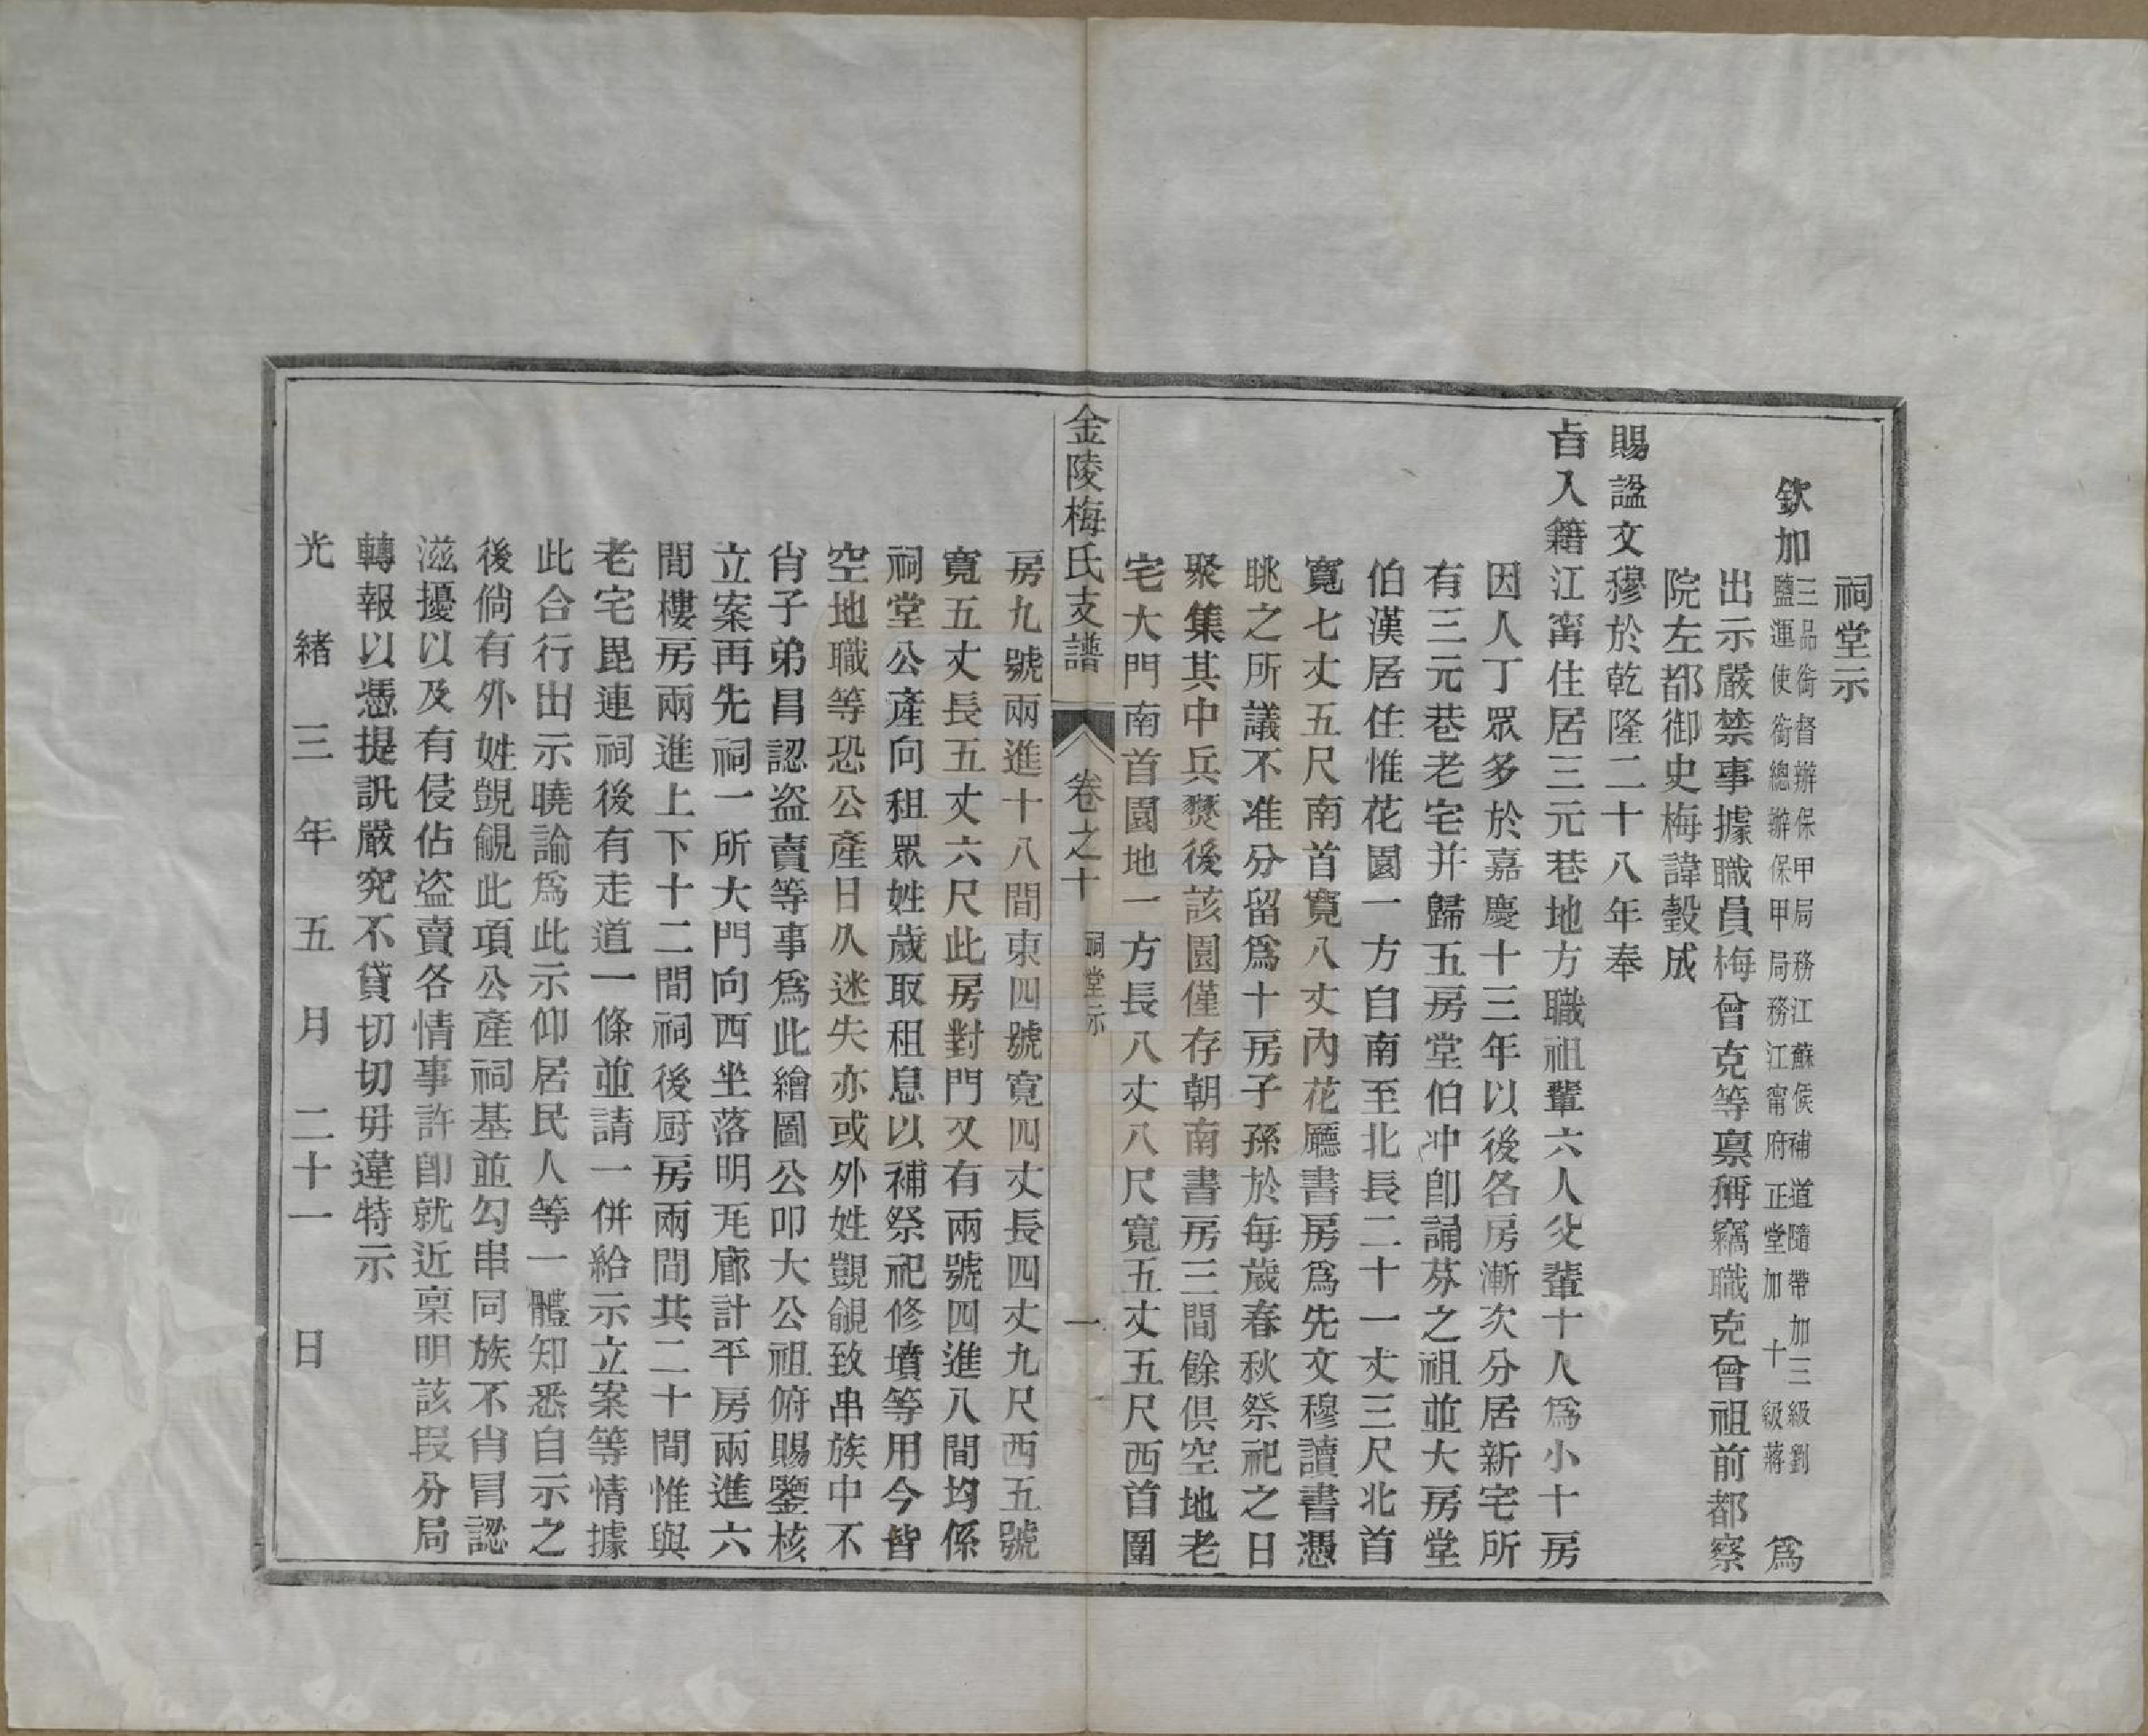 祠堂示
欽加三品銜督辦保甲局務江蘇候補道隨帶加三級劉
鹽運使銜總辦保甲局務江甯府正堂加十級蔣　爲
出示嚴禁事據職員梅曾克等禀稱竊職克曾祖前都察
院左都御史梅諱瑴成
賜諡文穆於乾隆二十八年奉
旨入籍江甯住居三元巷地方職祖輩六人父輩十人爲小十房
因人丁眾多於嘉慶十三年以後各房漸次分居新宅所
有三元巷老宅并歸五房堂伯冲卽誦芬之祖並大房堂
伯漢居住惟花園一方自南至北長二十一丈三尺北首
寬七丈五尺南首寬八丈內花廳書房爲先文穆讀書憑
眺之所議不准分留爲十房子孫於每歲春秋祭祀之日
聚集其中兵燹後該園僅存朝南書房三間餘俱空地老
宅大門南首園地一方長八丈八尺寬五丈五尺西首圍
金陵梅氏支譜　卷之十　祠堂示　一
房九號兩進十八間東四號寬四丈長四丈九尺西五號
寬五丈長五丈六尺此房對門又有兩號四進八間均係
祠堂公產向租眾姓歲取租息以補祭祀修墳等用今皆
空地職等恐公產日久迷失亦或外姓覬覦致串族中不
肖子弟昌認盜賣等事爲此繪圖公叩大公祖俯賜鑒核
立案再先祠一所大門向西坐落明瓦廊計平房兩進六
間樓房兩進上下十二間祠後厨房兩間共二十間惟與
老宅毘連祠後有走道一條並請一併給示立案等情據
此合行出示曉諭爲此示仰居民人等一體知悉自示之
後倘有外姓覬覦此項公產祠基並勾串同族不肖冒認
滋擾以及有侵佔盜賣各情事許卽就近禀明該段分局
轉報以憑提訊嚴究不貸切切毋違特示
光緒三年五月二十一日